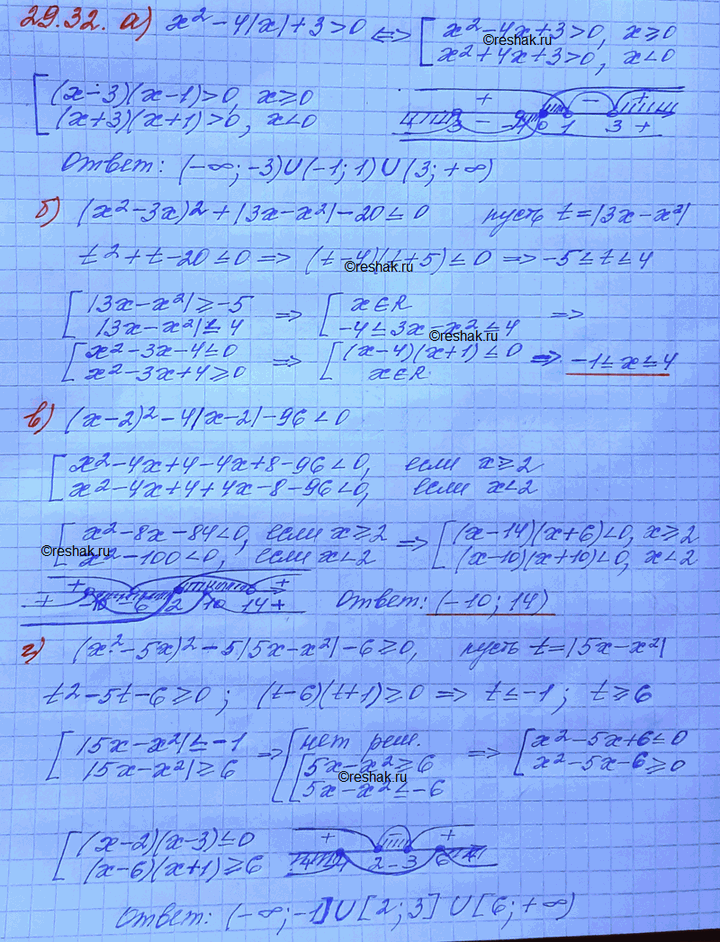 29.32. а) x²-4|x|+3>0 <=> [ x²-4x+3>0, x≥0
x²+4x+3>0, x<0
©reshak.ru
[ (x-3)(x-1)>0, x≥0
(x+3)(x+1)>0, x<0
+ - +
-3 - -1 0 1 3 +
Ответ: (-∞;-3)∪(-1;1)∪(3;+∞)
б) (x²-3x)²+|3x-x²|-20≤0 пусть t=|3x-x²|
t²+t-20≤0 => (t-4)(t+5)≤0 => -5≤t≤4
©reshak.ru
[ |3x-x²|≥-5 => [ x∈R =>
|3x-x²|≤4 -4≤3x-x²≤4
©reshak.ru
[ x²-3x-4≤0 => [ (x-4)(x+1)≤0 => -1≤x≤4
x²-3x+4≥0 x∈R
в) (x-2)²-4|x-2|-96<0
[ x²-4x+4-4x+8-96<0, если x≥2
x²-4x+4+4x-8-96<0, если x<2
[ x²-8x-84<0, если x≥2 => [ (x-14)(x+6)<0, x≥2
©reshak.ru
x²-100<0, если x<2 (x-10)(x+10)<0, x<2
+ +
+ -10 -6 2 10 14 + Ответ: (-10; 14)
г) (x²-5x)²-5|5x-x²|-6≥0, пусть t=|5x-x²|
t²-5t-6≥0; (t-6)(t+1)≥0 => t≤-1; t≥6
[ |5x-x²|≤-1 => [ нет реш. => [ x²-5x+6≤0
|5x-x²|≥6 [ 5x-x²≥6 x²-5x-6≥0
©reshak.ru
5x-x²≤-6
[ (x-2)(x-3)≤0 + - +
(x-6)(x+1)≥6 -1 2 - 3 6
Ответ: (-∞;-1]∪[2;3]∪[6;+∞)